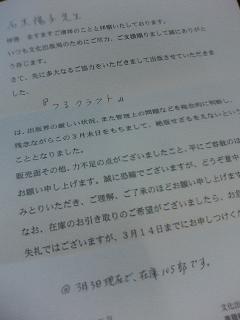 拝啓 ますますご清祥のことと拝察いたしております。
いつも文化出版局のためにご尽力、ご支援賜りまして誠にありがと
う存じます。
さて、先に多大なるご協力をいただきまして出版させていただきま
した、
『つるクラフト』
は、出版界の厳しい状況、また管理上の問題などを総合的に判断し、
残念ながらこの3月末日をもちまして、絶版せざるをえないといた
こととなりました。
販売面その他、力不足の点がございましたこと、平にご容赦のほ
お願い申し上げます。誠に恐縮でございますが、どうぞ意中
みとりいただき、ご理解、ご了承のほどお願い申し上げます
なお、在庫のお引き取りのご希望がございましたら、お
失礼ではございますが、3月14日までにお申しつけくだ
@3月3日現在で、在庫105部です。
文化出